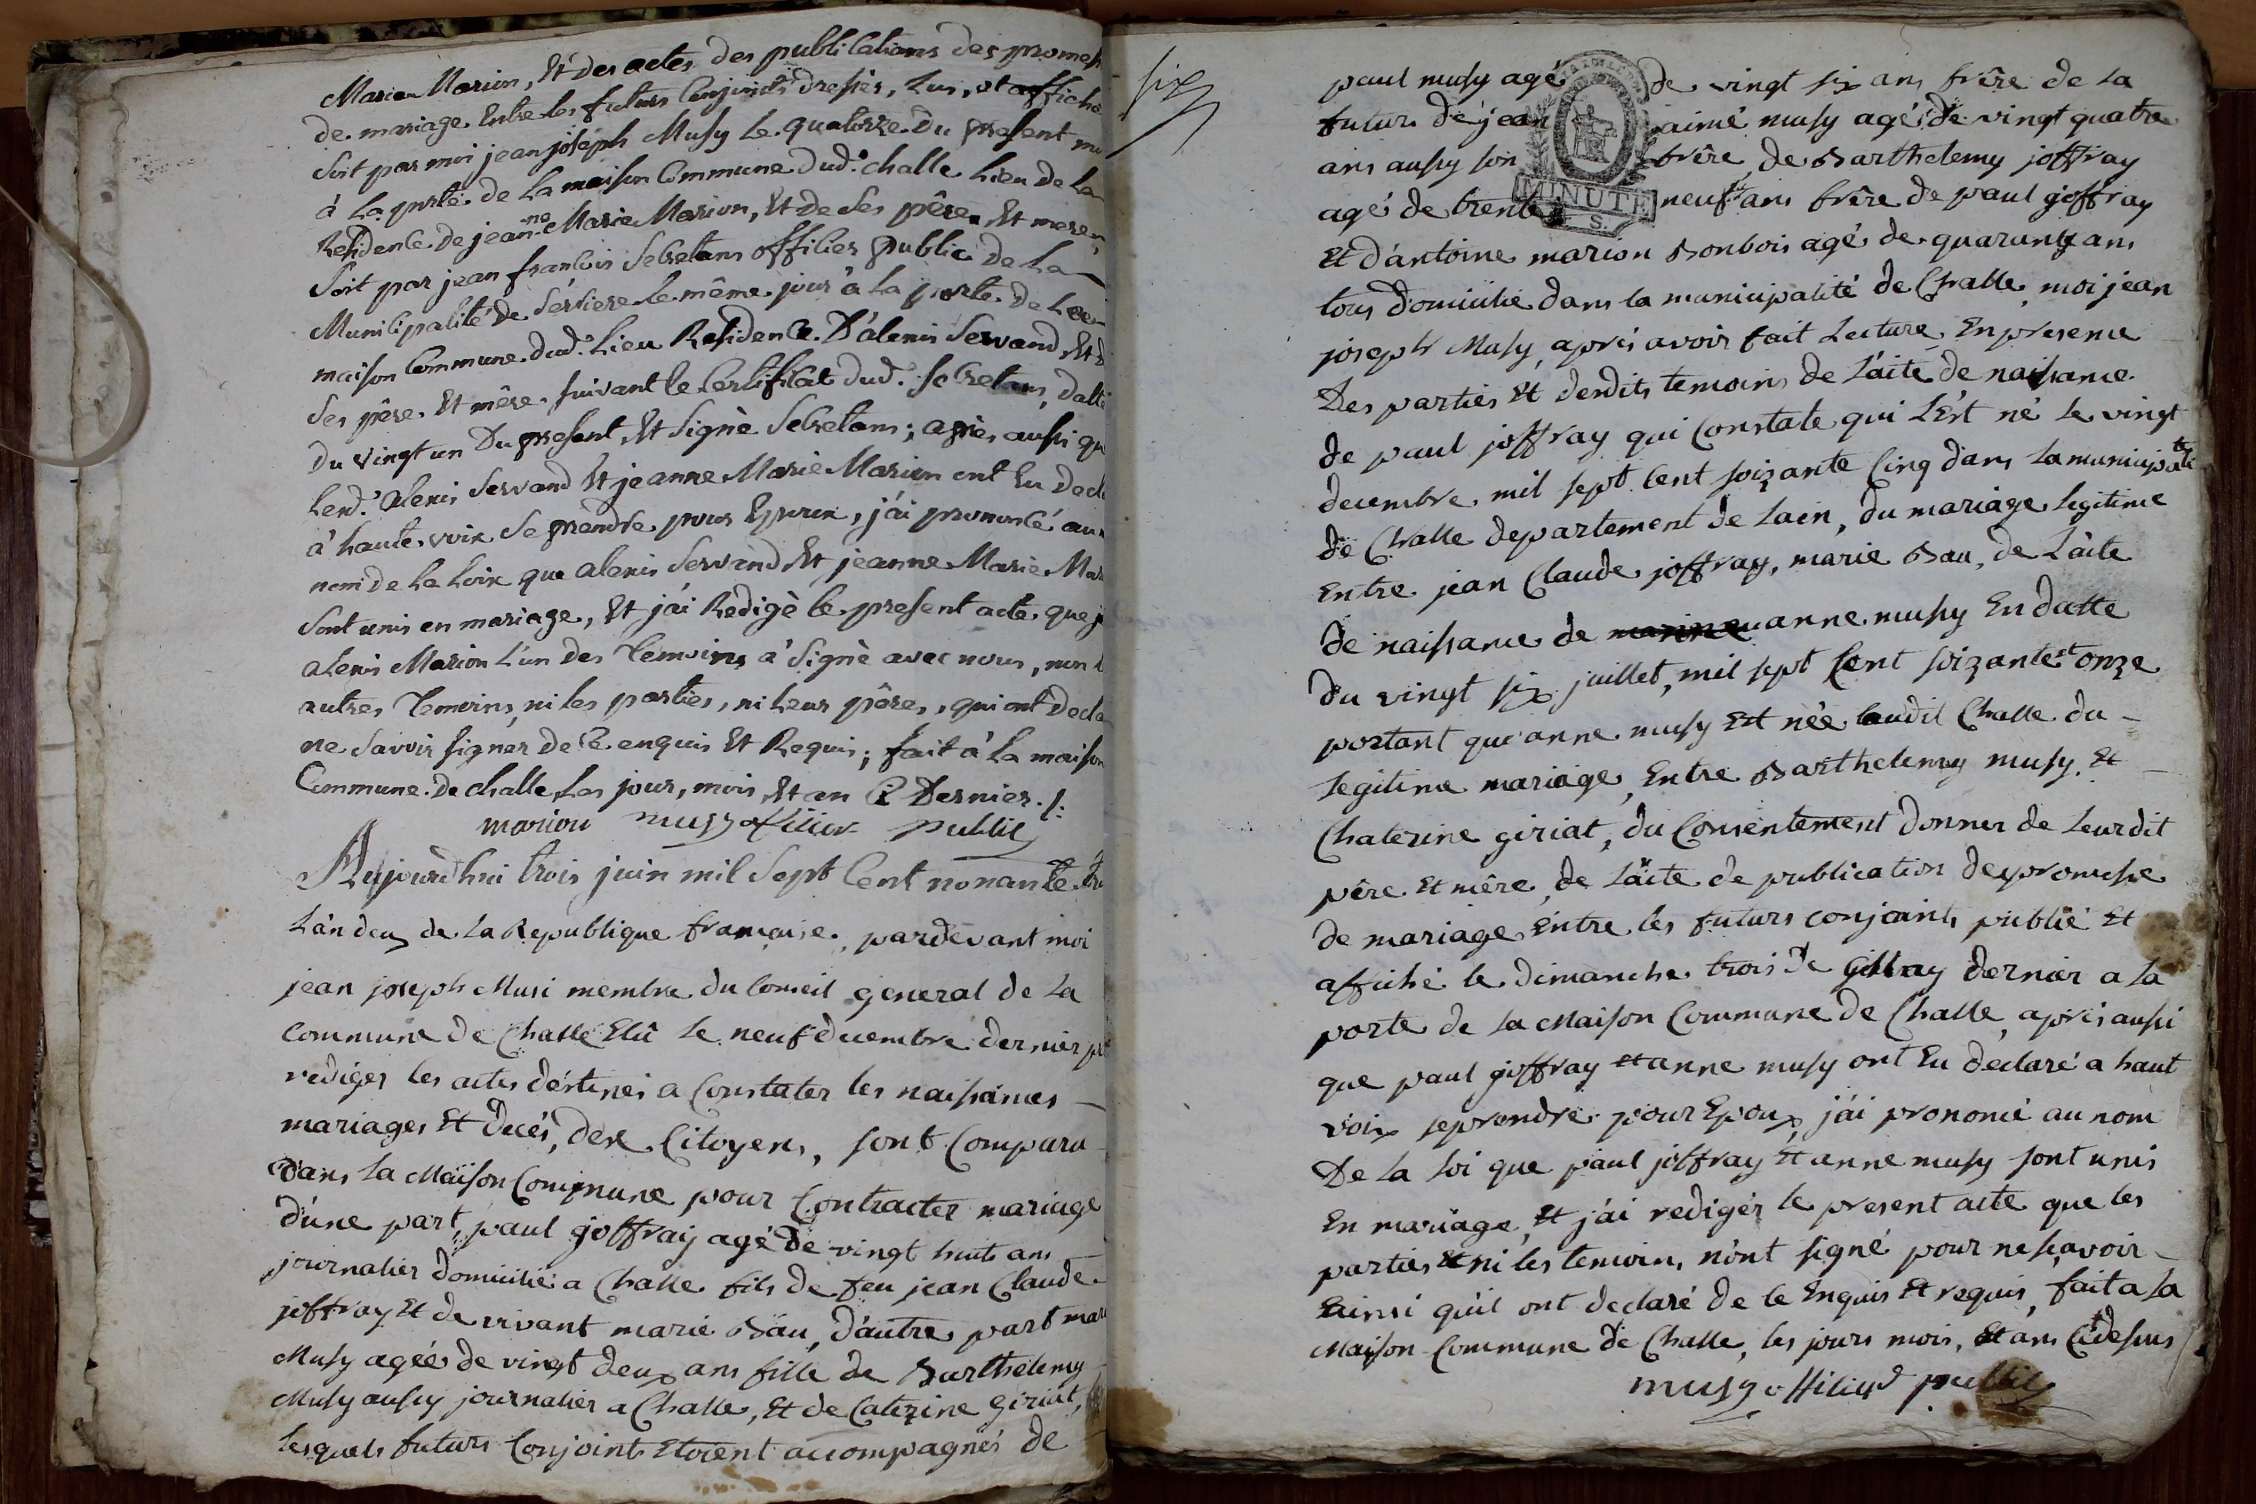 Marie Marion, Et des actes des publications des promess
de mariage Entre les futurs Conjoints dressés, Lus, et affiché
Soit par moi jean joseph Musy le quatorze du present mo
à La porte de La maison Commune dud. challe Lieu de La
Residence de jeanne Marie Marion, Et de Ses père Et mere,
Soit par jean francois Secretans officier public de La
Municipalité de Serviere le même jour à La porte de La
maison Commune dud. Lieu Residence D'alexis Servand, Et d
Ses père Et mère suivant le Certificat dud. Secretans, datté
du vingt un Du present, Et Signè Secretans; aprés aussi que
Led. alexis Servand Et jeanne Marie Marion ont Eu decla
à haute voix Se prendre pour Epoux, j'ai prononcé au
nom de La Loix que alexis Servand, Et jeanne Marie Mar
Sont unis en mariage, Et j'ai Redigè le present acte que j
alexis Marion L'un des Temoins a Signè avec nous, non l
autres Temoins, ni les parties, ni Leur pères, qui ont Decla
ne Savoir signer de Ce enquis Et Requis; fait à La maison
Commune de challe Les jour, mois, Et an Ci Dernier ./.
marion musy officier public
Aujourd'hui trois juin mil Sept Cent nonante tr
L'an deux de La Republique francaise, pardevant moi
jean joseph Musi membre du Conseil general de La
Commune de Challe Elû le neuf decembre dernier p
rediger les actes déstinés a Constater les naissances
mariages Et decés, des Citoyens, sont Comparu
dans La Maison Commune pour Contracter mariage
d'une part, paul joffray agé de vingt huit ans
journalier domicilié a Challe fils de feu jean Claude
joffray Et de vivant marie Bau, d'autre part mari
Musy agée de vingt deux ans fille de Barthelemy
Musy aussy journalier a Challe, Et de Caterine giriat,
lesquels futurs Conjoints Etoient accompagnés de
six
paul musy agé de vingt six ans frêre de La
futur. de jean aimé musy agé de vingt quatre
ans aussy son frêre de Barthelemy joffray
agé de trente neuf ans frêre de paul joffray
MINUTE
S.
Et d'antoine marion Bonbois agé de quarante ans
tous domicilié dans la municipalité de Challe, moi jean
joseph Musy, aprés avoir fait Lecture En presence
Des parties Et desdits temoins de L'acte de naissance
de paul joffray qui Constate qui L'Est né le vingt
decembre mil sept Cent soizante Cinq dans La municipalité
de Challe departement de Lain, du mariage legitime
Entre jean Claude joffray, marie Bau, de L'acte
de naissance de anne musy En datte
du vingt six juillet, mil sept Cent soizante et onze
portant que anne musy Est née audit Challe du
legitime mariage, Entre Barthelemy musy Et
Chaterine giriat, du Consentement donner de Leurdit
pêre Et mêre, de L'acte de publication de promesse
de mariage Entre les futurs conjoints publié Et
affiché le dimanche trois de May dernier a La
porte de La Maison Commune de Challe, aprés aussi
que paul joffray et anne musy ont Eu declaré a haut
voix seprendre pour Epoux, j'ai prononcé au nom
De La Loi que paul joffray Et anne musy sont unis
En mariage, Et j'ai rediger le present acte que les
parties Et ni les temoins, n'ont signé pour ne sçavoir
Eainsi qu'il ont declaré de Ce Enquis Et requis, fait a La
Maison Commune de Challe, les jours mois, Et ans Cidesus
musy officier public